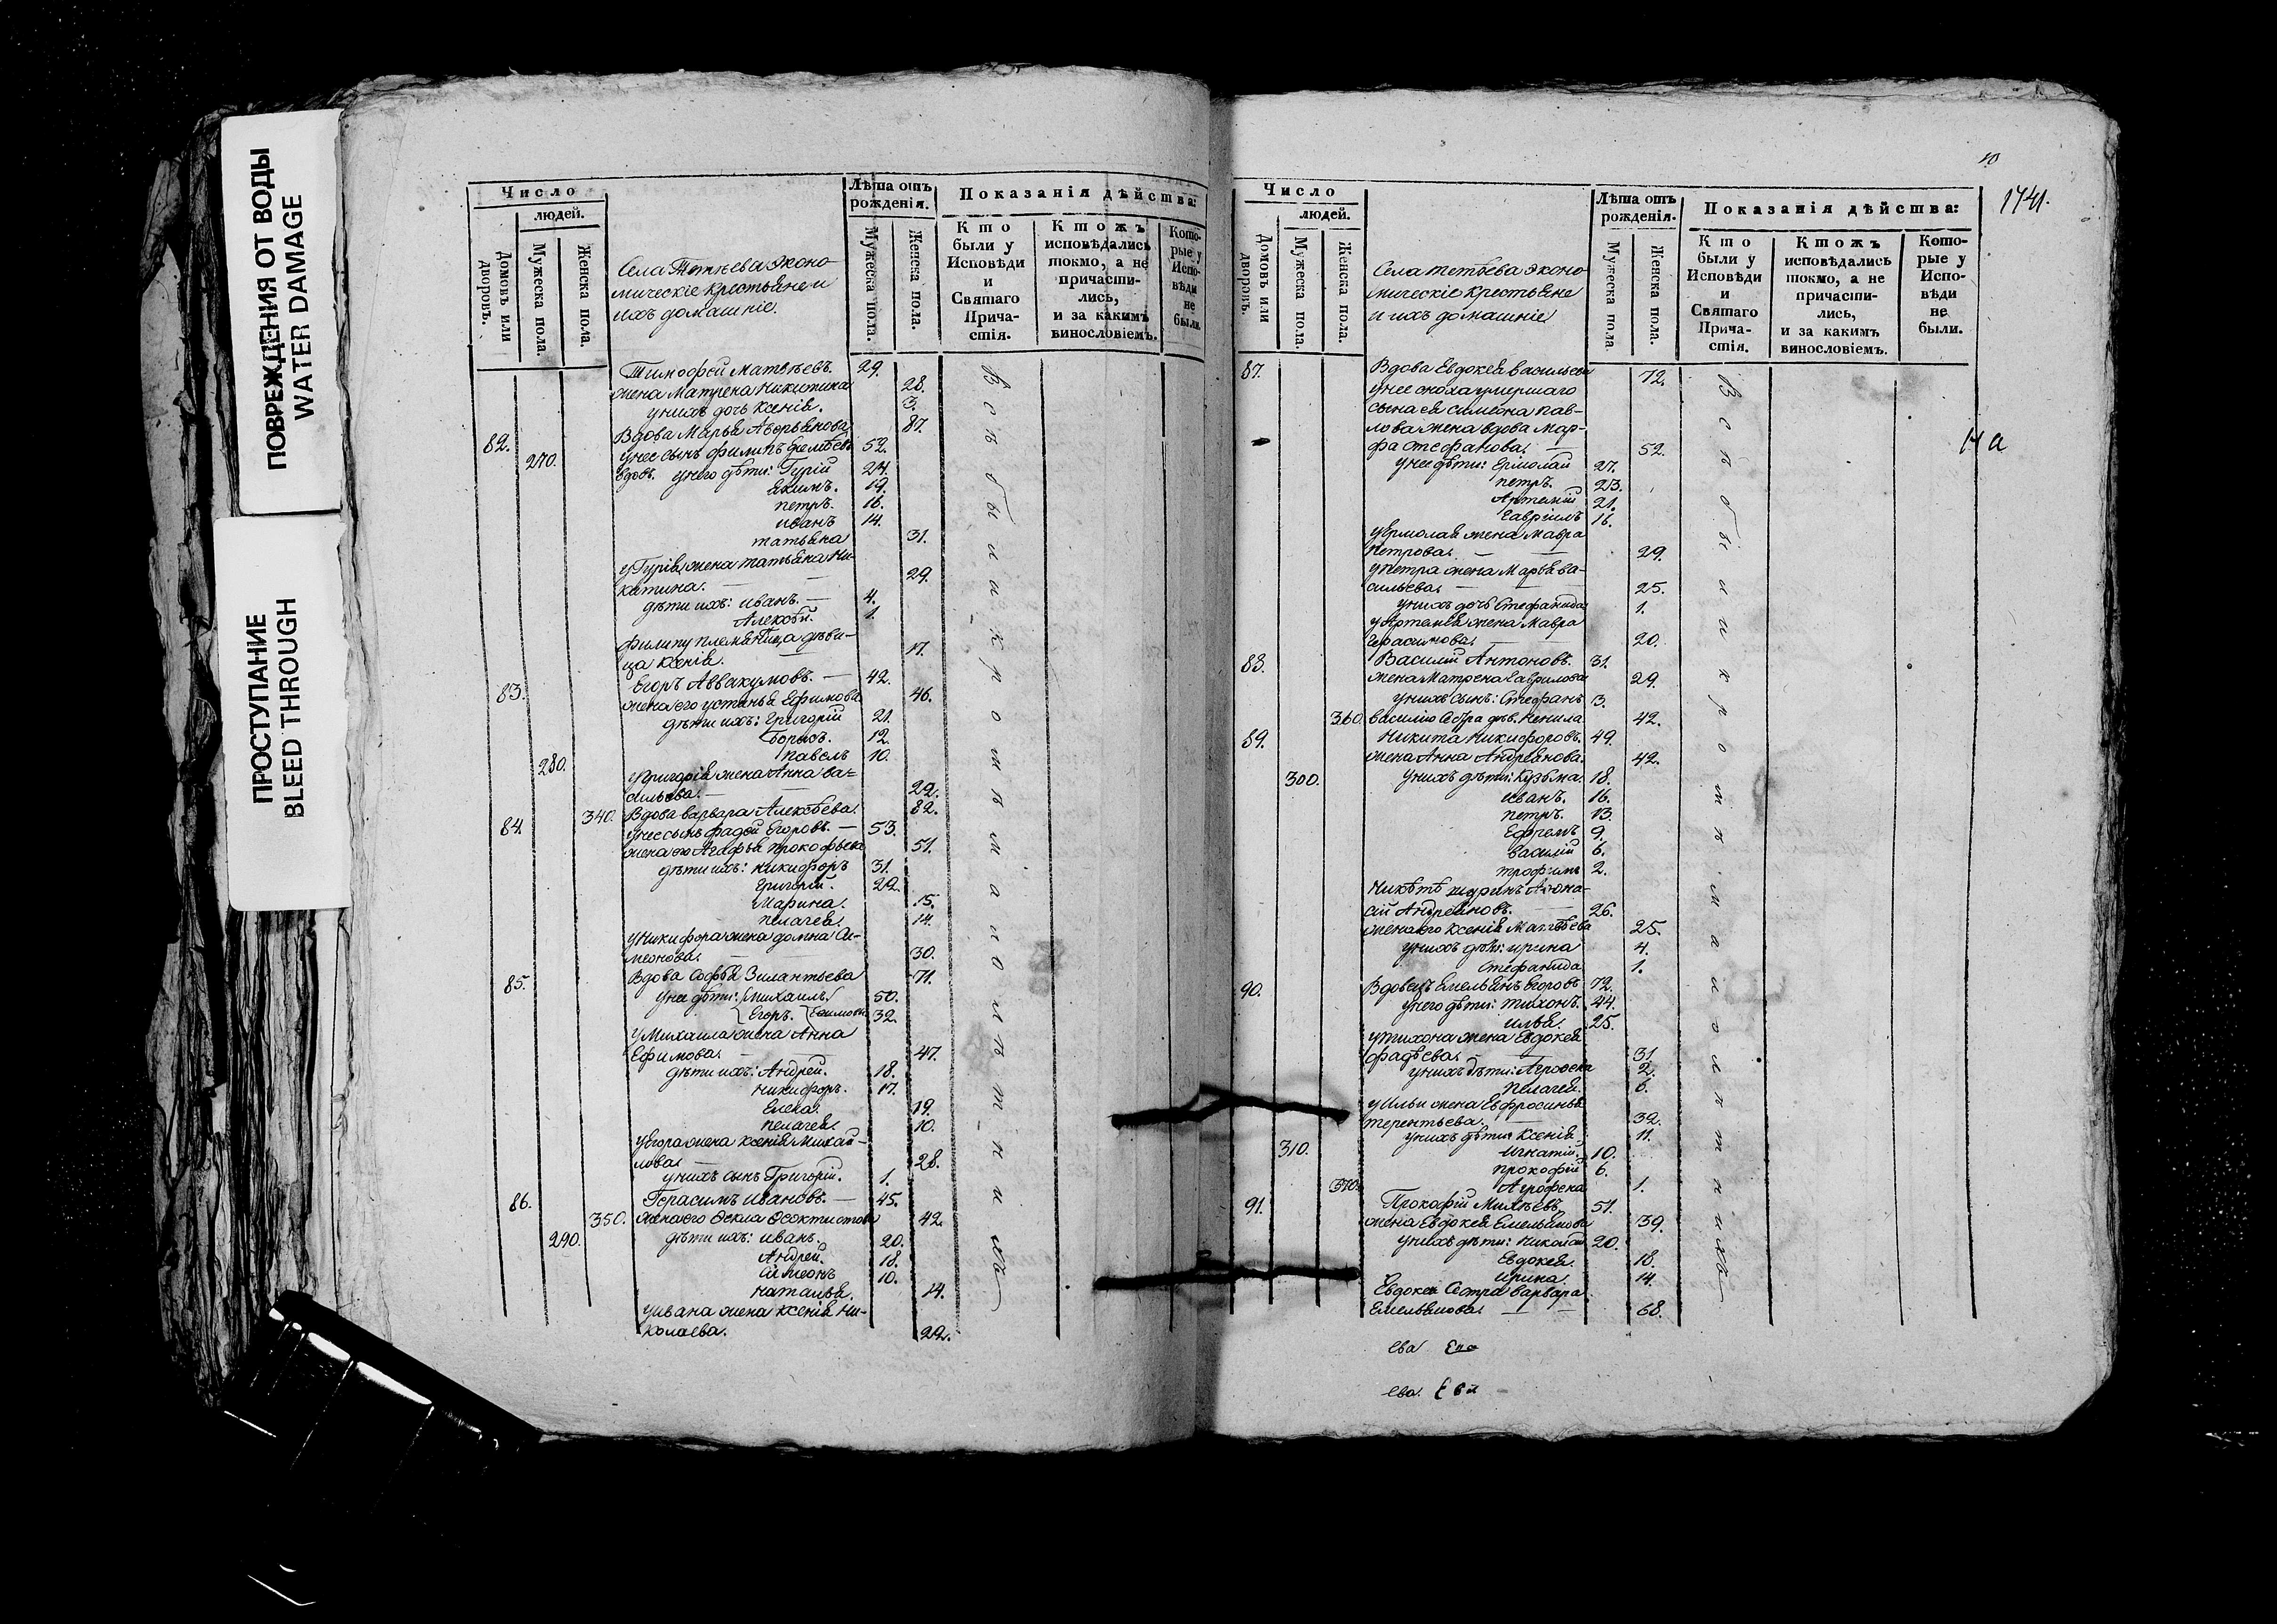 ПОВРЕЖДЕНИЯ ОТ ВОДЫ
WATER DAMAGE
ПРОСТУПАНИЕ
BLEED THROUGH
Число
людей.
Домовъ или дворовъ.
Мужеска пола.
Женска пола.
Села Тетѣева эконо-
мическіе крестьяне и
ихъ домашніе.
Лѣта отъ рожденія.
Мужеска пола.
Женска пола.
Показанія дѣйства:
Кто были у Исповѣди и Святаго Причастія.
Ктожъ исповѣдались токмо, а не причастились, и за какимъ винословіемъ.
Которые у Исповѣди не были.
Тимофей Матвѣевъ. 29.
жена Матрена Никитина 28.
у нихъ дочь Ксенія. 3.
82. Вдова Марья Аверьянова 87.
270. у нее сынъ Филипъ 52.
вдовъ. у него дѣти: Гурій 24.
Екимъ. 19.
петръ. 16.
иванъ 14.
татьяна 31.
у Гурія жена татьяна Ни-
китина. — 29.
дѣти ихъ: иванъ. — 4.
Алексѣй. 1.
филипу племянница дѣви-
ца Ксенія. 17.
83. Егоръ Аввакумовъ. — 42.
жена его устинья Ефимова 46.
дѣти ихъ: Григорій 21.
Борисъ. 12.
280. павелъ 10.
у григорія жена Анна ва-
сильева. — 22.
340. Вдова варвара Алексѣева. 82.
84. у нее сынъ фадей Егоровъ. — 53.
жена его Агафья прокофьева 51.
дѣти ихъ: никифоръ 31.
григорій. 22.
Марина. 15.
пелагея. 14.
у никифора жена домна Си-
меонова. — 30.
85. Вдова Софья Зилантьева 71.
у нее дѣти: Михаилъ 50.
Егоръ. Ефимовы 32.
у Михаила жена Анна
Ефимова. 47.
дѣти ихъ: Андрей. 18.
никифоръ. 17.
Елена. 19.
пелагея. 10.
у Егора жена ксенія Михай-
лова. — 28.
у нихъ сынъ Григорій. 1.
86. Герасимъ ивановъ. — 45.
350. жена его Фекла Феоктистова 42.
290. дѣти ихъ: иванъ. 20.
Андрей. 18.
Симеонъ 10.
наталья. 14.
у ивана жена ксенія ни-
колаева. 22.
Вси были
10
1741.
Число
людей.
Домовъ или дворовъ.
Мужеска пола.
Женска пола.
Села тетѣева эконо-
мическіе крестьяне
и ихъ домашніе
Лѣта отъ рожденія.
Мужеска пола.
Женска пола.
Показанія дѣйства:
Кто были у Исповѣди и Святаго Причастія.
Ктожъ исповѣдались токмо, а не причастились, и за какимъ винословіемъ.
Которые у Исповѣди не были.
87. Вдова Евдокея васильева 72.
у нее сноха умершаго
сына ея симеона пав-
лова жена вдова Мар-
фа стефанова. — 52.
у нее дѣти: Ермолай 27.
петръ. 23.
Артемій 21.
Гавріилъ 16.
у Ермолая жена Мавра
петрова. — 29.
у петра жена Марья ва-
сильева. 25.
у нихъ дочь Стефанида 1.
у Артемья жена Мавра
Герасимова. 20.
88. Василий Антоновъ. 31.
жена Матрена Гаврилова 29.
у нихъ сынъ: Стефанъ 3.
360. василію сестра дѣв. Ненила 42.
89. Никита Никифоровъ. 49.
жена Анна Андреянова. 42.
300. у нихъ дѣти: Кузьма. 18.
иванъ. 16.
петръ. 13.
Ефремъ 9.
василій 6.
трофимъ 2.
Никитѣ шуринъ Афона-
сій Андреяновъ. 26.
жена его ксенія Матвѣева 25.
у нихъ дѣти: ирина 4.
Стефанида 1.
90. Вдовецъ Емельянъ Егоровъ 72.
у него дѣти: тихонъ. 44.
илья. 25.
у тихона жена Евдокея
фадѣева. 31.
у нихъ дѣти: Агрофена 2.
пелагея. 6.
у Ильи жена Евфросинья
терентьева. 32.
у нихъ дѣти: Ксенія. 11.
310. игнатій. 10.
прокофій 6.
370. Агрофена 1.
91. Прокофій Михѣевъ 51.
жена Евдокея Емельянова 39.
у нихъ дѣти: николай 20.
Евдокея. 18.
ирина. 14.
Евдокеи сестра варвара
Емельянова. — 68.
Вси были
На
ева
ева.